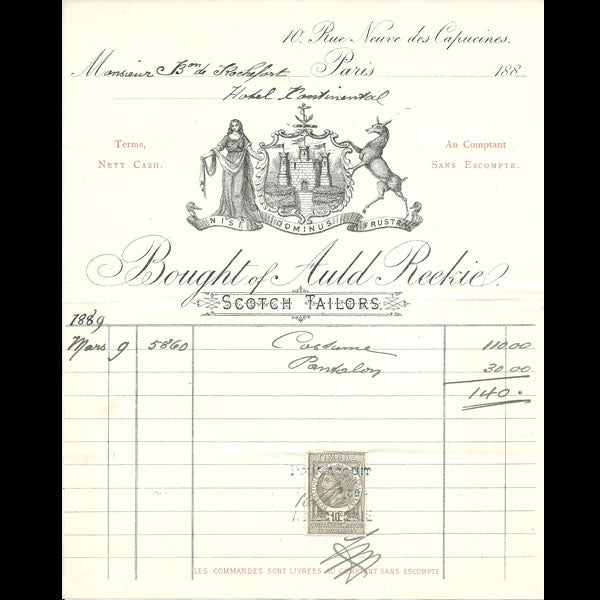 10. Rue Neuve des Capucines.
Monsieur Bon de Rochefort Paris 188
Hotel Continental
Terms,
Nett Cash.
Au Comptant
Sans Escompte.
NISI DOMINUS FRUSTRA
Bought of Auld Reekie.
SCOTCH TAILORS.
1889
Mars 9 5860 Costume 110.00
Pantalon 30.00
140.
TIMBRE
10c
LES COMMANDES SONT LIVRÉES AU COMPTANT SANS ESCOMPTE